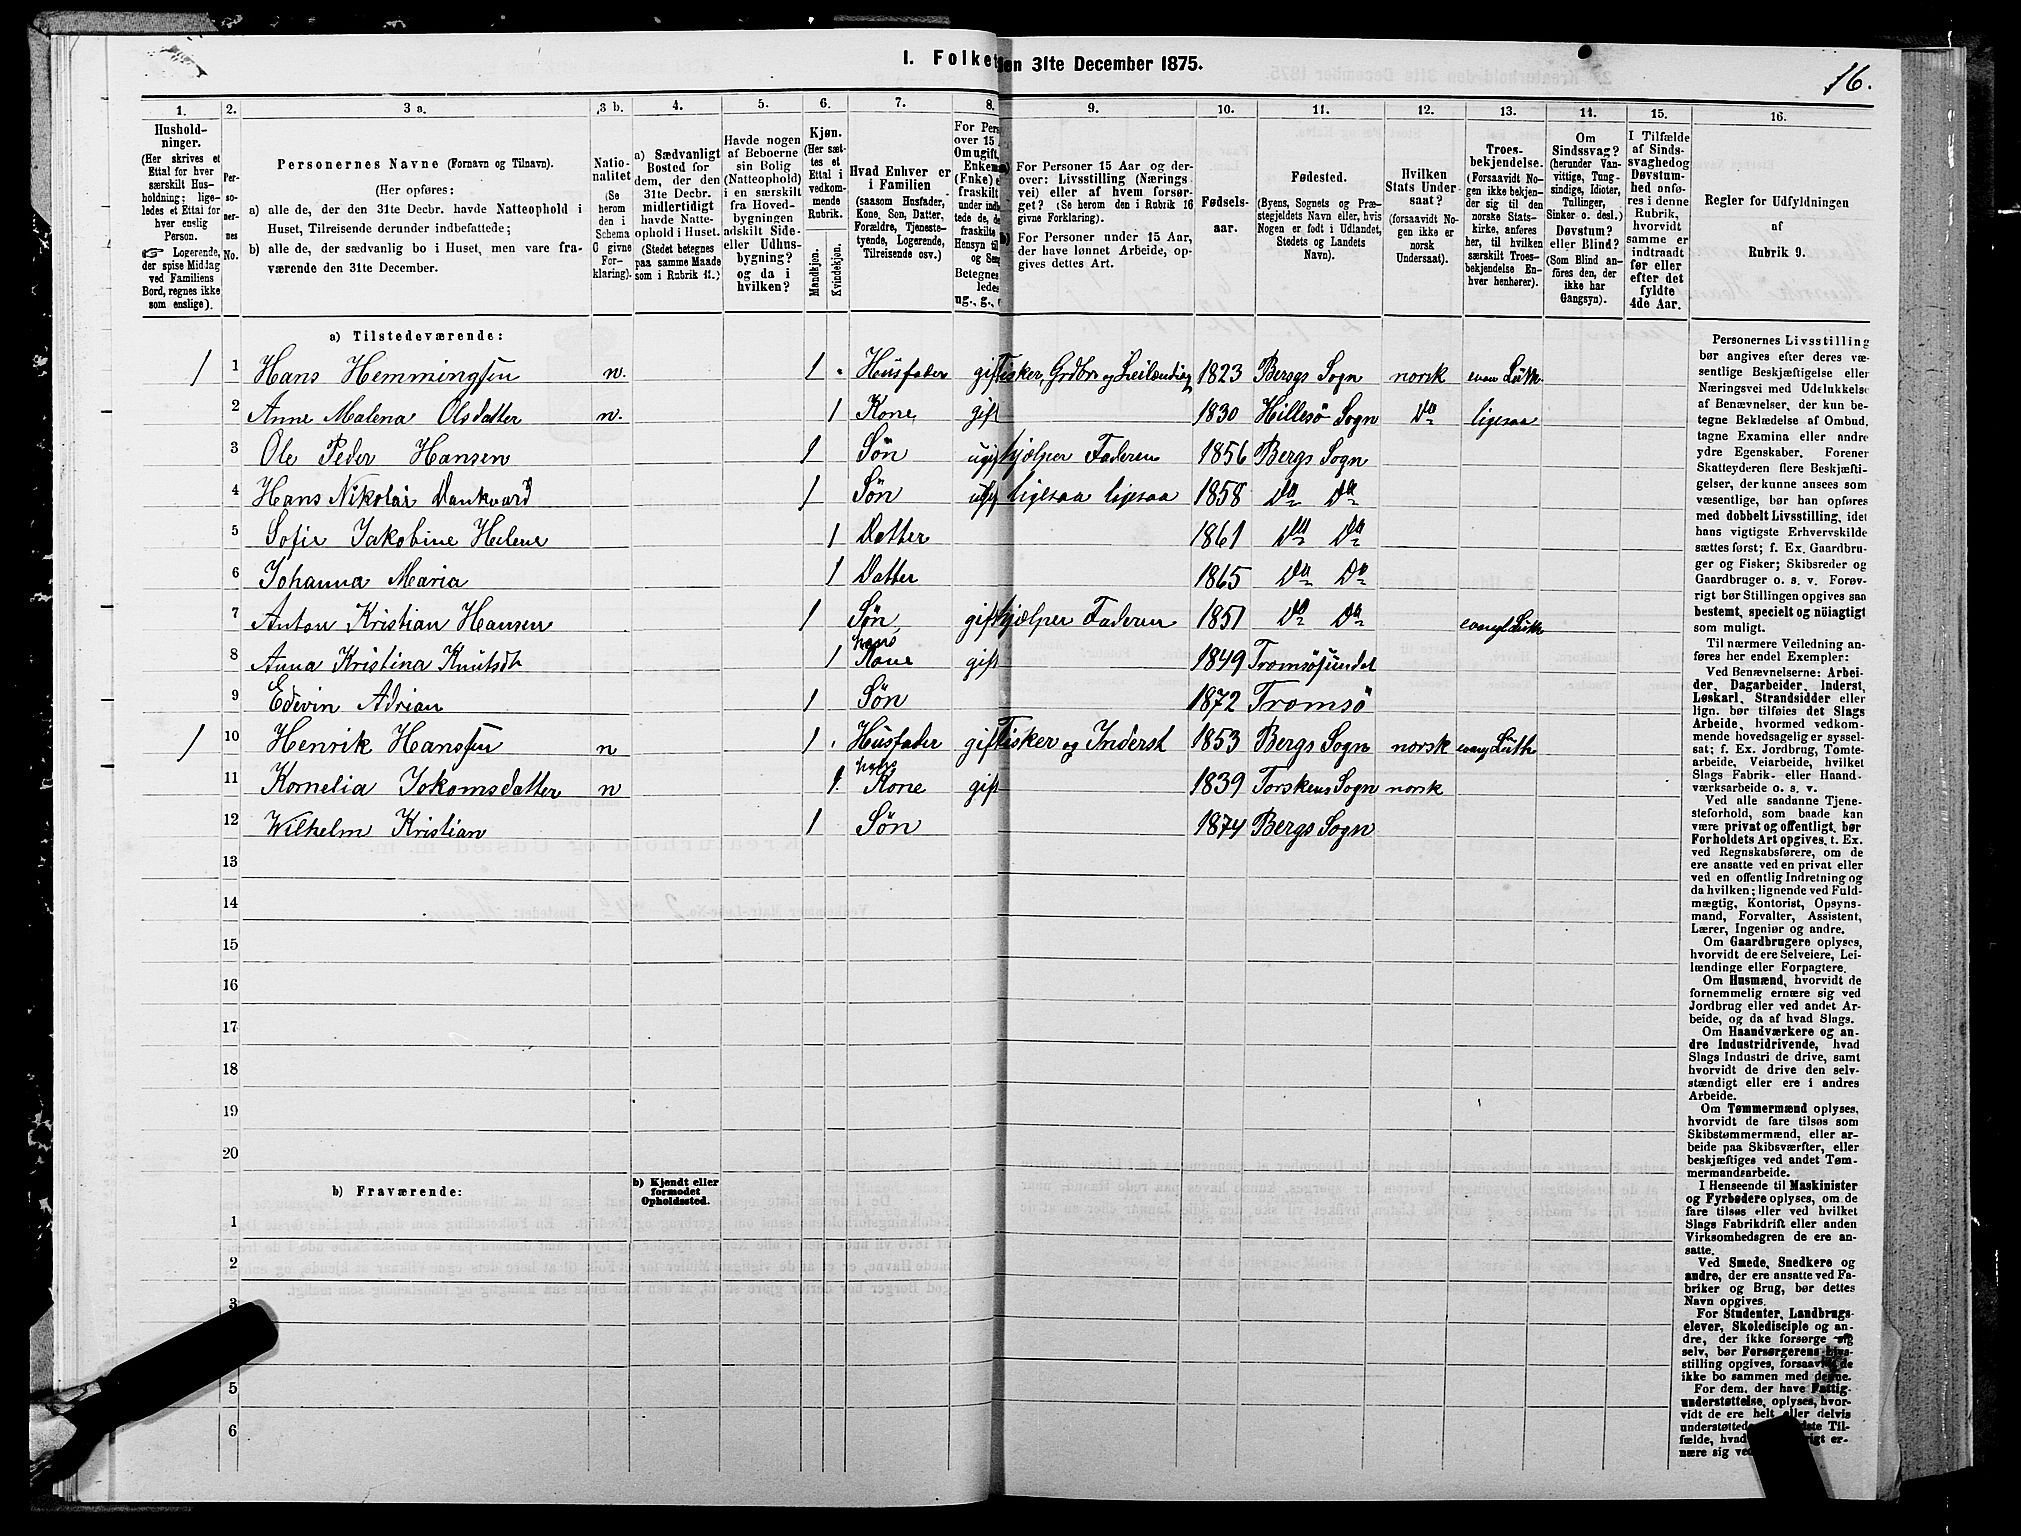 I. Folket
den 31te December 1875.
16.
1. 2. 3 a. 3 b. 4. 5. 6. 7. 8. 9. 10. 11. 12. 13. 14. 15. 16.
Hushold-
ninger.
(Her skrives et
Ettal for hver
særskilt Hus-
holdning; lige-
ledes et Ettal for
hver enslig
Person.
☞ Logerende,
der spise Middag
ved Familiens
Bord, regnes ikke
som enslige).
Per-
so-
ner-
nes
No.
Personernes Navne (Fornavn og Tilnavn).
(Her opføres:
a) alle de, der den 31te Decbr. havde Natteophold i
Huset, Tilreisende derunder indbefattede;
b) alle de, der sædvanlig bo i Huset, men vare fra-
værende den 31te December.
Natio-
nalitet
(Se
herom
den i
Schema
C givne
For-
klaring).
a) Sædvanligt
Bosted for
dem, der den
31te Decbr.
midlertidigt
havde Natte-
ophold i Huset.
(Stedet betegnes
paa samme Maade
som i Rubrik 11.)
Havde nogen
af Beboerne
sin Bolig
(Natteophold)
i en særskilt
fra Hoved-
bygningen
adskilt Side-
eller Udhus-
bygning?
og da i
hvilken?
Kjøn.
(Her sæt-
tes et
Ettal i
vedkom-
mende
Rubrik.
Mandkjøn.
Kvindekjøn.
Hvad Enhver er
i Familien
(saasom Husfader,
Kone, Søn, Datter,
Forældre, Tjeneste-
tyende, Logerende,
Tilreisende osv.)
For Pers
over 15
Om ugift,
Enkem
(Enke)
fraskilt
under
tede de,
fraskilte,
Hensyn til
og Sen
Betegnes
ledes
ug., g.,
a) For Personer 15 Aar og der-
over: Livsstilling (Nærings
vei) eller af hvem forsør-
get? (Se herom den i Rubrik 16
givne Forklaring).
b) For Personer under 15 Aar,
der have lønnet Arbeide, op-
gives dettes Art.
Fødsels-
aar.
Fødested.
(Byens, Sognets og Præ-
stegjeldets Navn eller, hvis
Nogen er født i Udlandet,
Stedets og Landets
Navn).
Hvilken
Stats Under-
saat?
(forsaavidt No-
gen ikke er
norsk
Undersaat).
Troes-
bekjendelse.
(Forsaavidt No-
gen ikke bekjen-
der sig til den
norske Stats-
kirke, anføres
her, til hvilken
særskilt Troes-
bekjendelse En-
hver henhører).
Om
Sindssvag?
(herunder Van-
vittige, Tung-
sindige, Idioter,
Tullinger,
Sinker o. desl.)
Døvstum?
eller Blind?
(Som Blind an-
føres den, der
ikke har
Gangsyn).
I Tilfælde
af Sinds-
svaghed og
Døvstum-
hed anfø-
res i denne
Rubrik,
hvorvidt
samme er
indtraadt
før eller
efter det
fyldte
4de Aar.
Regler for Udfyldningen
af
Rubrik 9.
a) Tilstedeværende:
1 1 Hans Hemmingsen n. 1 Husfader gift Fisker, Grdbr og Leilænding 1823 Bergs Sogn norsk evan Luth
2 Anne Malena Olsdatter n. 1 Kone gift 1830 Hillesö Sogn Do ligesaa
3 Ole Peder Hansen 1 Søn ugift hjælper Faderen 1856 Bergs Sogn
4 Hans Nikolai Dankvard 1 Søn ugift ligesaa ligesaa 1858 Do Do
5 Sofie Jakobine Helene 1 Datter 1861 Do Do
6 Johanna Maria 1 Datter 1865 Do Do
7 Anton Kristian Hansen 1 Søn gift hjælper Faderen 1851 Do Do evangl Luth
8 Anna Kristina Knutsdt 1 hans Kone gift 1849 Tromsösundet
9 Edevin Adrian 1 Søn 1872 Tromsö
1 10 Henrik Hanssen n 1 Husfader gift Fisker og Inderst 1853 Bergs Sogn norsk evang Luth
11 Kornelia Jokomsdatter n 1 hans Kone gift 1839 Torskens Sogn norsk
12 Wilhelm Kristian 1 Søn 1874 Bergs Sogn
13
14
15
16
17
18
19
20
b) Fraværende:
b) Kjendt eller
formodet
Opholdssted.
1
2
3
5
6
Personernes Livsstilling
bør angives efter deres væ-
sentlige Beskjæftigelse eller
Næringsvei med Udelukkelse
af Benævnelser, der kun be-
tegne Beklædelse af Ombud,
tagne Examina eller andre
ydre Egenskaber. Forener
Skatteyderen flere Beskjæfti-
gelser, der kunne ansees som
væsentlige, bør han opføres
med dobbelt Livsstilling, idet
hans vigtigste Erhvervskilde
sættes først; f. Ex. Gaardbru-
ger og Fisker; Skibsreder og
Gaardbruger o. s. v. Forøv-
rigt bør Stillingen opgives saa
bestemt, specielt og nöiagtigt
som muligt.
Til nærmere Veiledning an-
føres her endel Exempler:
Ved Benævnelserne: Arbei-
der, Dagarbeider, Inderst,
Løskarl, Strandsidder eller
lign. bør tilføies det Slags
Arbeide, hvormed vedkom-
mende hovedsagelig er syssel-
sat; f. Ex. Jordbrug, Tomte-
arbeide, Veiarbeide, hvilket
Slags Fabrik- eller Haand-
værksarbeide o. s. v.
Ved alle saadanne Tjene-
steforhold, som baade kan
være privat og offentligt, bør
Forholdets Art opgives, t. Ex.
ved Regnskabsførere, om de
ere ansatte ved en privat eller
ved en offentlig Indretning og
da hvilken; lignende ved Fuld-
mægtig, Kontorist, Opsyns-
mand, Forvalter, Assistent,
Lærer, Ingeniør og andre.
Om Gaardbrugere oplyses,
hvorvidt de ere Selveiere, Lei-
lændinge eller Forpagtere.
Om Husmænd, hvorvidt de
fornemmelig ernære sig ved
Jordbrug eller ved andet Ar-
beide, og da af hvad Slags.
Om Haandværkere og an-
dre Industridrivende, hvad
Slags Industri de drive, samt
hvorvidt de drive den selv-
stændigt eller ere i andres
Arbeide.
Om Tømmermænd oplyses,
hvorvidt de fare tilsøs som
Skibstømmermænd, eller ar-
beide paa Skibsværfter, eller
beskjæftiges ved andet Tøm-
mermandsarbeide.
I Henseende til Maskinister
og Fyrbødere oplyses, om de
fare tilsøs eller ved hvilket
Slags Fabrikdrift eller anden
Virksomhedsgren de ere an-
satte.
Ved Smede, Snedkere og
andre, der ere ansatte ved Fa-
briker og Brug, bør dettes
Navn opgives.
For Studenter, Landbrugs-
elever, Skoledisciple og an-
dre, der ikke forsørge sig
selv, bør Forsørgerens Livs-
stilling opgives, forsaavidt de
ikke bo sammen med denne.
For dem, der have Fattig-
understøttelse, oplyses, hvor-
vidt de ere helt eller delvis
understøttede Til-
fælde, hvad er-
nære sig ved